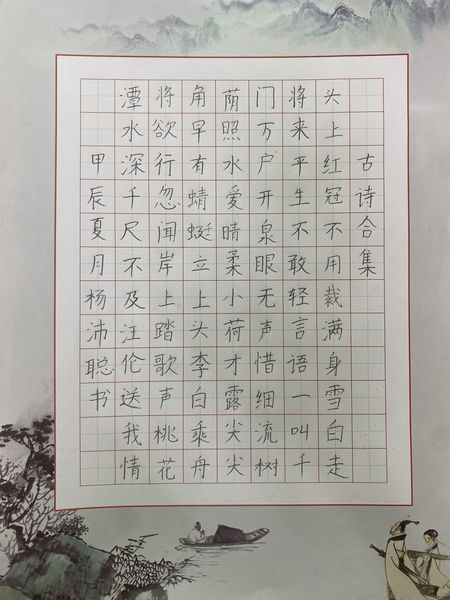 古诗合集
头上红冠不用裁满身雪白走
将来平生不敢轻言语一叫千
门万户开泉眼无声惜细流树
荫照水爱晴柔小荷才露尖尖
角早有蜻蜓立上头李白乘舟
将欲行忽闻岸上踏歌声桃花
潭水深千尺不及汪伦送我情
甲辰夏月杨沛聪书